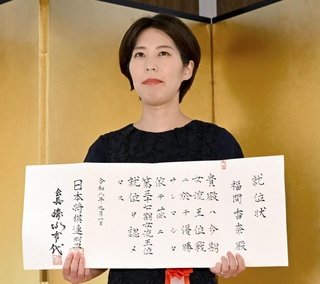 就位状
福間香奈殿
貴殿ハ今期
女流王位戦
ニ於テ優勝
サレマシタ
依テ茲ニ
第三十七期女流王位
就位ヲ認メ
マス
令和八年九月一日
日本将棋連盟
会長